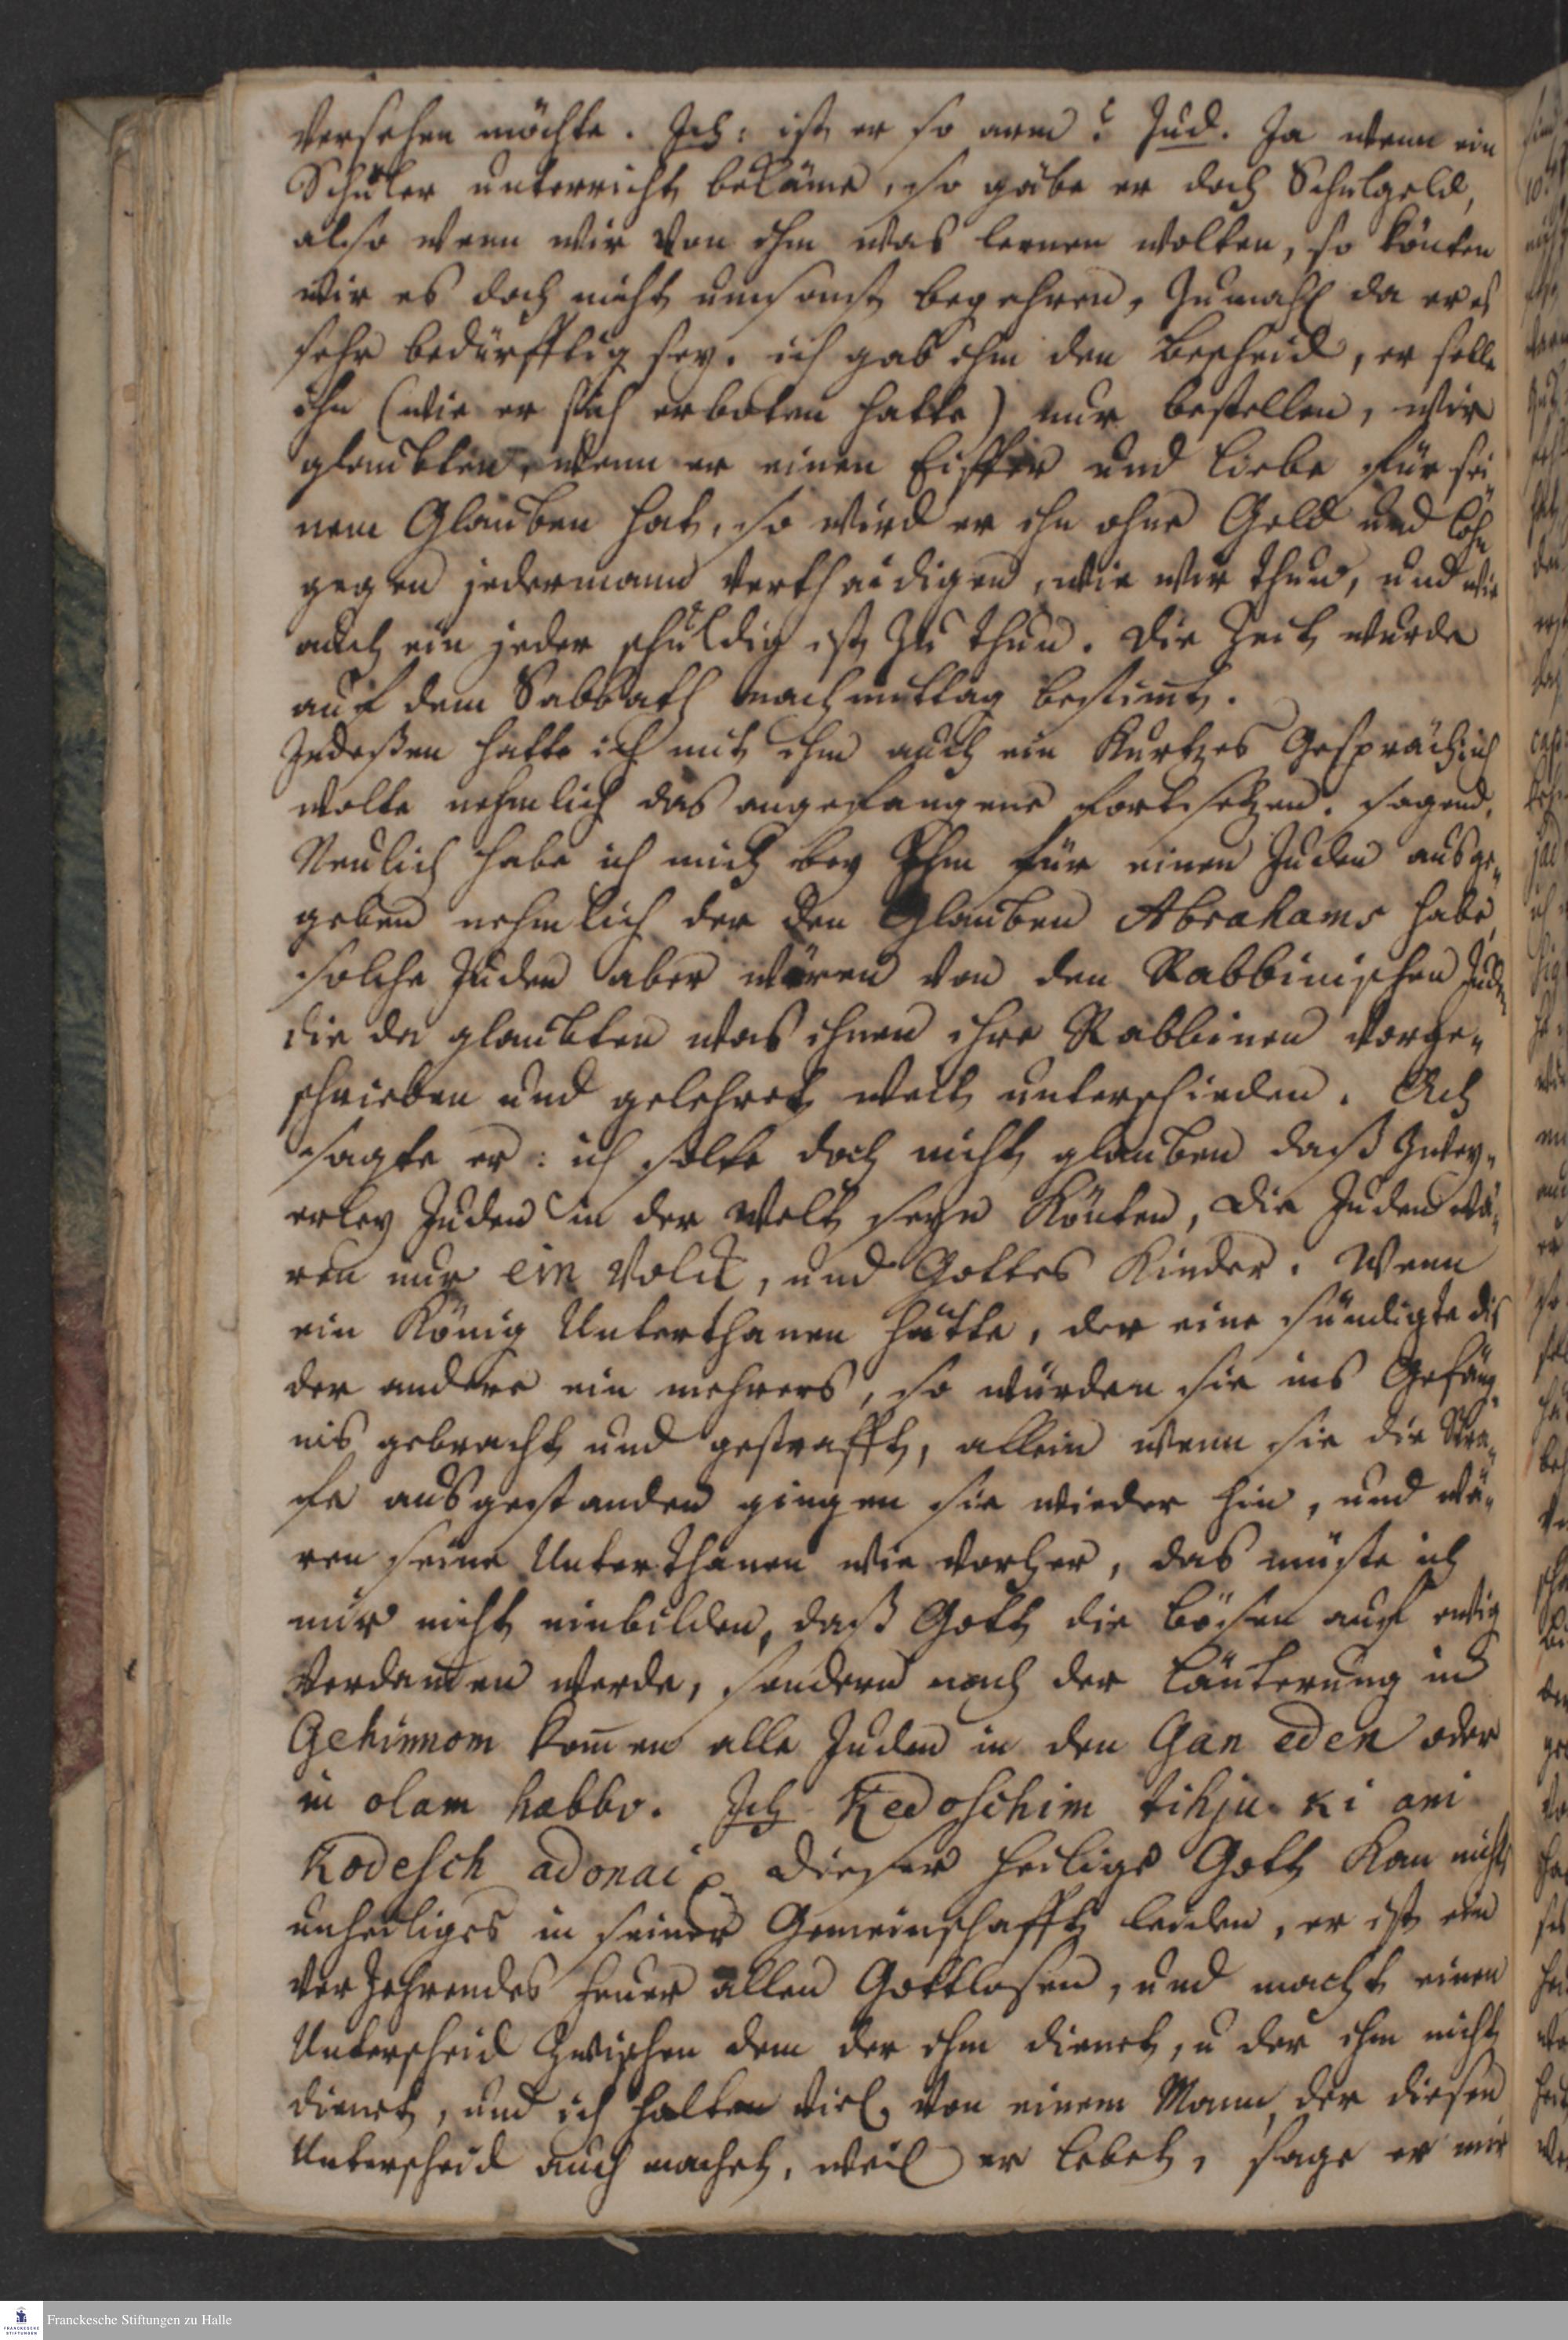 versehen möchte. Ich: ist er so arm? Jud. Ja wenn ein
Schüler unterricht bekäme, so gäbe er doch Schulgeld,
also wenn wir von ihm was lernen wolten, so könten
wir es doch nicht umsonst begehren, zumahl da er es
sehr bedürfftig sey. ich gab ihm den Bescheid, er solle
ihn (wie er sich erboten hatte) nur bestellen, wir
glaubten, wenn er einen Eiffer und Liebe für sei¬
nem Glauben hat, so wird er ihn ohne Geld und Lohn
gegen jedermann verthaidigen, wie wir thun, und wie
auch ein jeder schuldig ist zu thun. Die Zeit wurde
auf dem Sabbath nachmittag bestimt.
Indeßen hatte ich mit ihm auch ein Kurtzes Gespräch, ich
wolte nehmlich das angefangene fortsetzen. sagend,
Neulich habe ich mich bey Ihm für einen Juden ausge„
geben nehmlich der den Glauben Abrahams habe,
solche Juden aber wären von den Rabbinischen Juden
die da glaubten was ihnen ihre Rabbinen vorge„
schrieben und gelehret weit unterschieden. Ach
sagte er: ich solte doch nicht glauben daß zwey„
erley Juden in der Welt seyn könten, die Juden wä„
ren nur ein Volck, und Gottes Kinder. Wenn
ein König Unterthanen hätte, der eine sündigte dis
der andere ein mehrers, so würden sie ins Gefäng„
nis gebracht und gestrafft, allein wenn sie die Stra„
fe ausgestanden gingen sie wieder hin, und wä„
ren seine Unterthanen wie vorher, das müste ich
mir nicht einbilden, daß Gott die bösen auf ewig
verdamen werde, sondern nach der Läuterung im
Gehinnom komen alle Juden in den Gan eden oder
in olam habbo. Ich Kedoschim tihju ki ani
Kodesch adonai, dieser heilige Gott kan nichts
unheiliges in seiner Gemeinschafft leiden, er ist ein
verzehrendes Feuer allen Gottlosen, und macht einen
Unterscheid zwischen dem der ihm dienet, u der ihm nicht
dienet, und ich halten viel von einem Mann, der diesen
Unterscheid auch machet, weil er lebet, sage er mir
Franckesche Stiftungen zu Halle